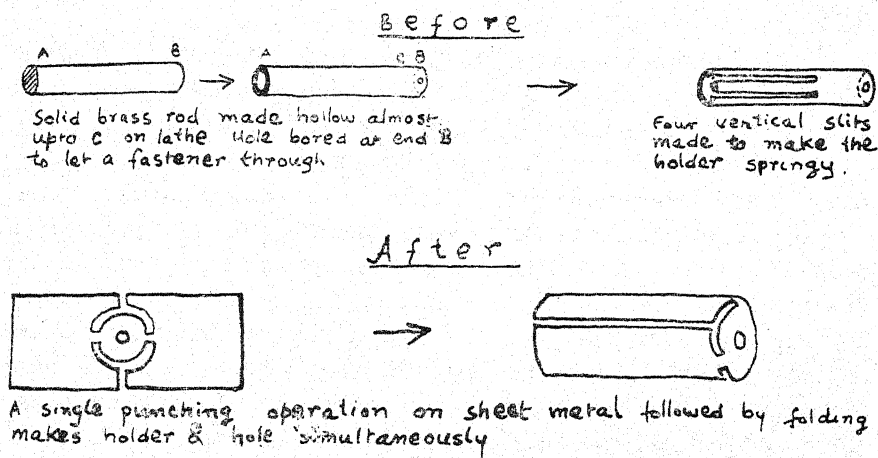 Before
A B
A C B
Solid brass rod made hollow almost
upto C on lathe Hole bored at end B
to let a fastener through
Four vertical slits
made to make the
holder springy.
After
A single punching operation on sheet metal followed by folding
makes holder & hole simultaneously